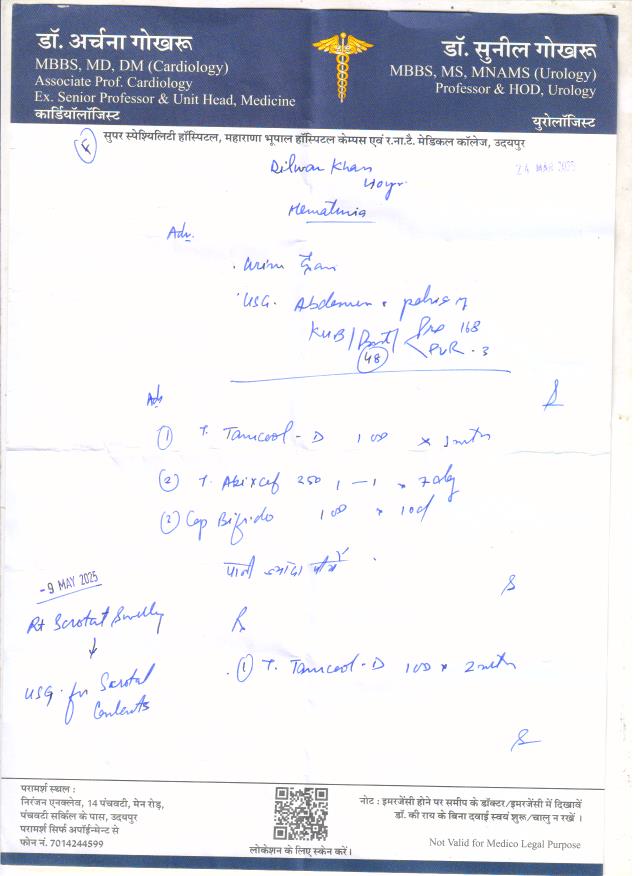 डॉ. अर्चना गोखरू
MBBS, MD, DM (Cardiology)
Associate Prof. Cardiology
Ex. Senior Professor & Unit Head, Medicine
कार्डियॉलॉजिस्ट
डॉ. सुनील गोखरू
MBBS, MS, MNAMS (Urology)
Professor & HOD, Urology
युरोलॉजिस्ट
सुपर स्पेश्यिलिटी हॉस्पिटल, महाराणा भूपाल हॉस्पिटल केम्पस एवं र.ना.टै. मेडिकल कॉलेज, उदयपुर
24 MAR 2025
Dilwar Khan
40yr
Hematuria
Adv.
USG. Abdomen & pelvis
KUB / Post / Pre 168
48 PVR . 3
Adv
① T. Tamcool - D 1 OD x 1 mth
② T. 250 1 — 1 x 7 day
Cap Bifido 1 OD x 10d
पानी ज्यादा पीयें
- 9 MAY 2025
Rt Scrotal Swelling
↓
USG. for Scrotal
Contents
① T. Tamcool - D 1 OD x 2 mth
परामर्श स्थल :
निरंजन एनक्लेव, 14 पंचवटी, मेन रोड़,
पंचवटी सर्किल के पास, उदयपुर
परामर्श सिर्फ अपॉईन्मेन्ट से
फोन नं. 7014244599
लोकेशन के लिए स्केन करें।
नोट : इमरजेंसी होने पर समीप के डॉक्टर/इमरजेंसी में दिखावें
डॉ. की राय के बिना दवाई स्वयं शुरू/चालु न रखें ।
Not Valid for Medico Legal Purpose